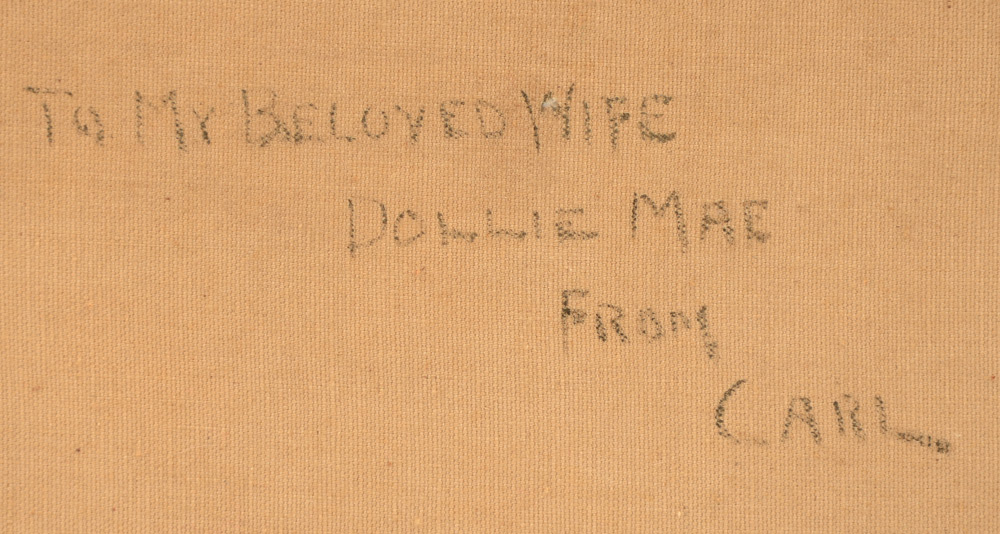 To My Beloved Wife
Dollie Mae
From
Carl